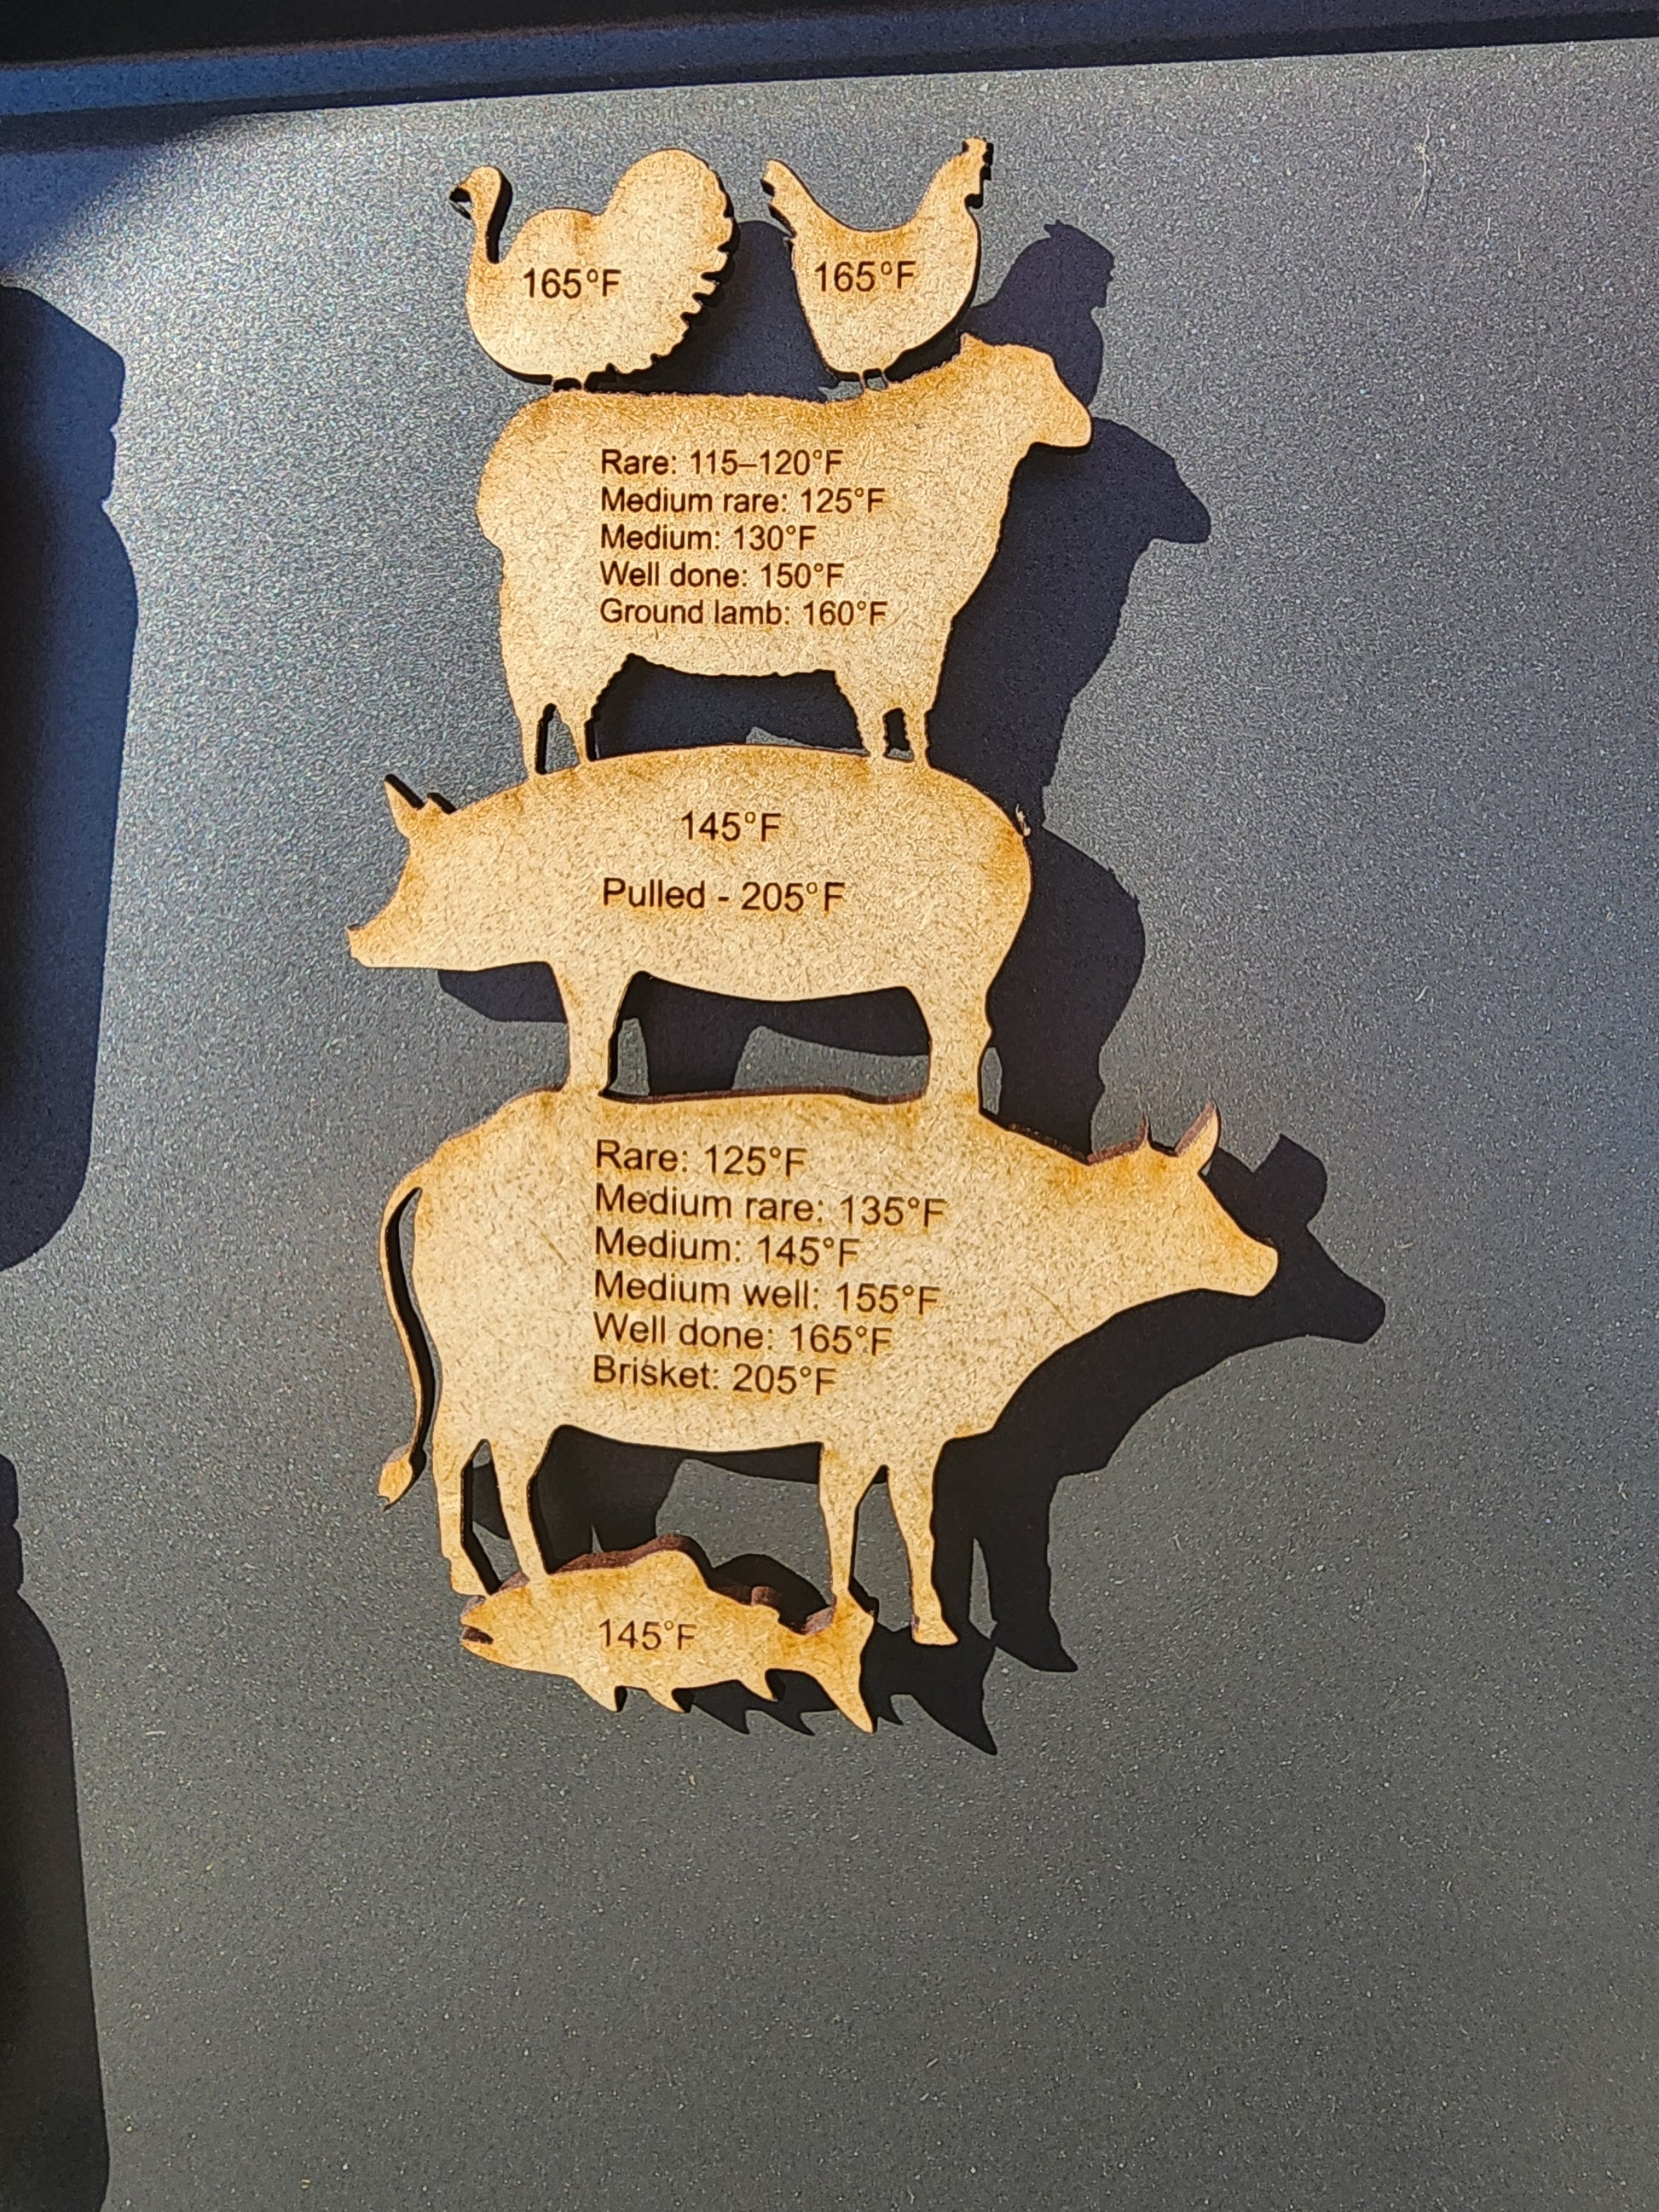 165°F
165°F
Rare: 115–120°F
Medium rare: 125°F
Medium: 130°F
Well done: 150°F
Ground lamb: 160°F
145°F
Pulled - 205°F
Rare: 125°F
Medium rare: 135°F
Medium: 145°F
Medium well: 155°F
Well done: 165°F
Brisket: 205°F
145°F